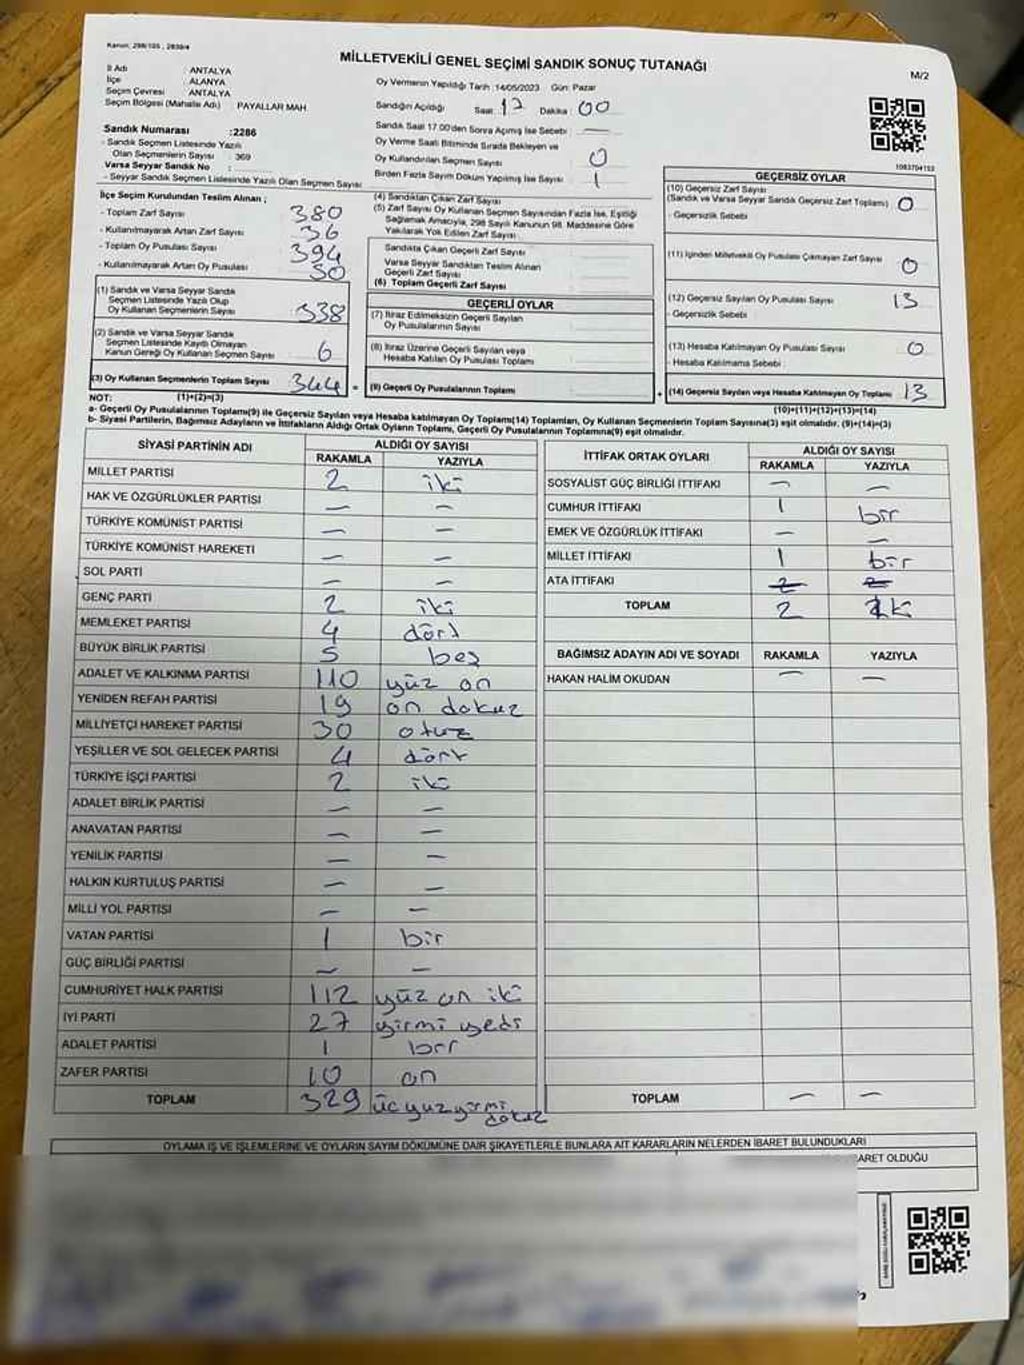 Kanun: 298/105 , 2839/4
MİLLETVEKİLİ GENEL SEÇİMİ SANDIK SONUÇ TUTANAĞI
M/2
İl Adı : ANTALYA
İlçe : ALANYA
Seçim Çevresi : ANTALYA
Seçim Bölgesi (Mahalle Adı) : PAYALLAR MAH.
Oy Vermenin Yapıldığı Tarih :14/05/2023 Gün: Pazar
Sandığın Açıldığı Saat : 17 Dakika : 00
Sandık Saat 17.00'den Sonra Açmış İse Sebebi : —
Oy Verme Saati Bitiminde Sırada Bekleyen ve
Oy Kullandırılan Seçmen Sayısı 0
Birden Fazla Sayım Döküm Yapılmış İse Sayısı 1
Sandık Numarası :2286
- Sandık Seçmen Listesinde Yazılı
Olan Seçmenlerin Sayısı : 369
Varsa Seyyar Sandık No :
- Seyyar Sandık Seçmen Listesinde Yazılı Olan Seçmen Sayısı
İlçe Seçim Kurulundan Teslim Alınan ;
- Toplam Zarf Sayısı 380
- Kullanılmayarak Artan Zarf Sayısı 36
- Toplam Oy Pusulası Sayısı 394
- Kullanılmayarak Artan Oy Pusulası 50
(1) Sandık ve Varsa Seyyar Sandık
Seçmen Listesinde Yazılı Olup
Oy Kullanan Seçmenlerin Sayısı : 338
(2) Sandık ve Varsa Seyyar Sandık
Seçmen Listesinde Kayıtlı Olmayan
Kanun Gereği Oy Kullanan Seçmen Sayısı 6
(3) Oy Kullanan Seçmenlerin Toplam Sayısı 344 =
(4) Sandıktan Çıkan Zarf Sayısı
(5) Zarf Sayısı Oy Kullanan Seçmen Sayısından Fazla İse, Eşitliği
Sağlamak Amacıyla, 298 Sayılı Kanunun 98. Maddesine Göre
Yakılarak Yok Edilen Zarf Sayısı
Sandıkta Çıkan Geçerli Zarf Sayısı
Varsa Seyyar Sandıktan Teslim Alınan
Geçerli Zarf Sayısı
(6) Toplam Geçerli Zarf Sayısı
GEÇERLİ OYLAR
(7) İtiraz Edilmeksizin Geçerli Sayılan
Oy Pusulalarının Sayısı
(8) İtiraz Üzerine Geçerli Sayılan veya
Hesaba Katılan Oy Pusulası Toplamı
(9) Geçerli Oy Pusulalarının Toplamı +
1063704153
GEÇERSİZ OYLAR
(10) Geçersiz Zarf Sayısı
(Sandık ve Varsa Seyyar Sandık Geçersiz Zarf Toplamı) 0
- Geçersizlik Sebebi
(11) İçinden Milletvekili Oy Pusulası Çıkmayan Zarf Sayısı 0
(12) Geçersiz Sayılan Oy Pusulası Sayısı 13
- Geçersizlik Sebebi
(13) Hesaba Katılmayan Oy Pusulası Sayısı 0
- Hesaba Katılmama Sebebi
(14) Geçersiz Sayılan veya Hesaba Katılmayan Oy Toplamı 13
NOT: (1)+(2)=(3)
(10)+(11)+(12)+(13)=(14)
a- Geçerli Oy Pusulalarının Toplamı(9) ile Geçersiz Sayılan veya Hesaba katılmayan Oy Toplamı(14) Toplamları, Oy Kullanan Seçmenlerin Toplam Sayısına(3) eşit olmalıdır. (9)+(14)=(3)
b- Siyasi Partilerin, Bağımsız Adayların ve İttifakların Aldığı Ortak Oyların Toplamı, Geçerli Oy Pusulalarının Toplamına(9) eşit olmalıdır.
SİYASİ PARTİNİN ADI ALDIĞI OY SAYISI
RAKAMLA YAZIYLA
MİLLET PARTİSİ 2 iki
HAK VE ÖZGÜRLÜKLER PARTİSİ — —
TÜRKİYE KOMÜNİST PARTİSİ — —
TÜRKİYE KOMÜNİST HAREKETİ — —
SOL PARTİ — —
GENÇ PARTİ 2 iki
MEMLEKET PARTİSİ 4 dört
BÜYÜK BİRLİK PARTİSİ 5 beş
ADALET VE KALKINMA PARTİSİ 110 yüz on
YENİDEN REFAH PARTİSİ 19 on dokuz
MİLLİYETÇİ HAREKET PARTİSİ 30 otuz
YEŞİLLER VE SOL GELECEK PARTİSİ 4 dört
TÜRKİYE İŞÇİ PARTİSİ 2 iki
ADALET BİRLİK PARTİSİ — —
ANAVATAN PARTİSİ — —
YENİLİK PARTİSİ — —
HALKIN KURTULUŞ PARTİSİ — —
MİLLİ YOL PARTİSİ — —
VATAN PARTİSİ 1 bir
GÜÇ BİRLİĞİ PARTİSİ — —
CUMHURİYET HALK PARTİSİ 112 yüz on iki
İYİ PARTİ 27 yirmi yedi
ADALET PARTİSİ 1 bir
ZAFER PARTİSİ 10 on
TOPLAM 329 üçyüzyirmi dokuz
İTTİFAK ORTAK OYLARI ALDIĞI OY SAYISI
RAKAMLA YAZIYLA
SOSYALİST GÜÇ BİRLİĞİ İTTİFAKI — —
CUMHUR İTTİFAKI 1 bir
EMEK VE ÖZGÜRLÜK İTTİFAKI — —
MİLLET İTTİFAKI 1 bir
ATA İTTİFAKI 2 2
TOPLAM 2
BAĞIMSIZ ADAYIN ADI VE SOYADI RAKAMLA YAZIYLA
HAKAN HALİM OKUDAN — —
TOPLAM — —
OYLAMA İŞ VE İŞLEMLERİNE VE OYLARIN SAYIM DÖKÜMÜNE DAİR ŞİKAYETLERLE BUNLARA AİT KARARLARIN NELERDEN İBARET BULUNDUKLARI
BARET OLDUĞU